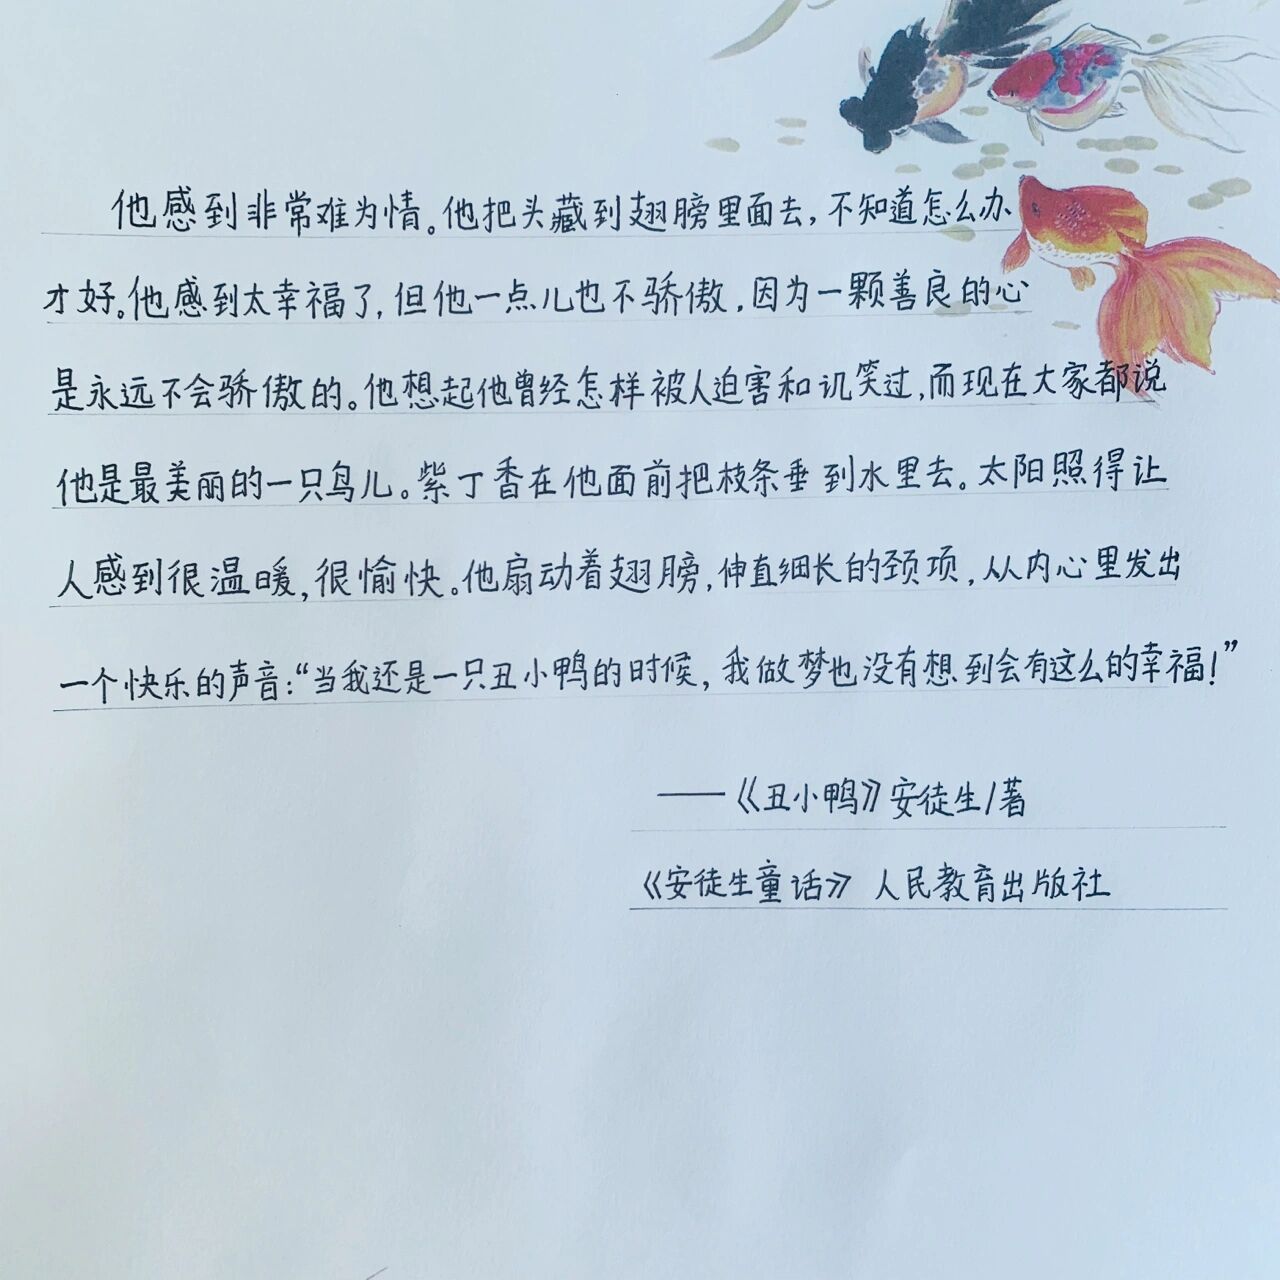 他感到非常难为情。他把头藏到翅膀里面去，不知道怎么办
才好。他感到太幸福了，但他一点儿也不骄傲，因为一颗善良的心
是永远不会骄傲的。他想起他曾经怎样被人迫害和讥笑过，而现在大家都说
他是最美丽的一只鸟儿。紫丁香在他面前把枝条垂到水里去。太阳照得让
人感到很温暖，很愉快。他扇动着翅膀，伸直细长的颈项，从内心里发出
一个快乐的声音：“当我还是一只丑小鸭的时候，我做梦也没有想到会有这么的幸福！”
——《丑小鸭》安徒生/著
《安徒生童话》 人民教育出版社